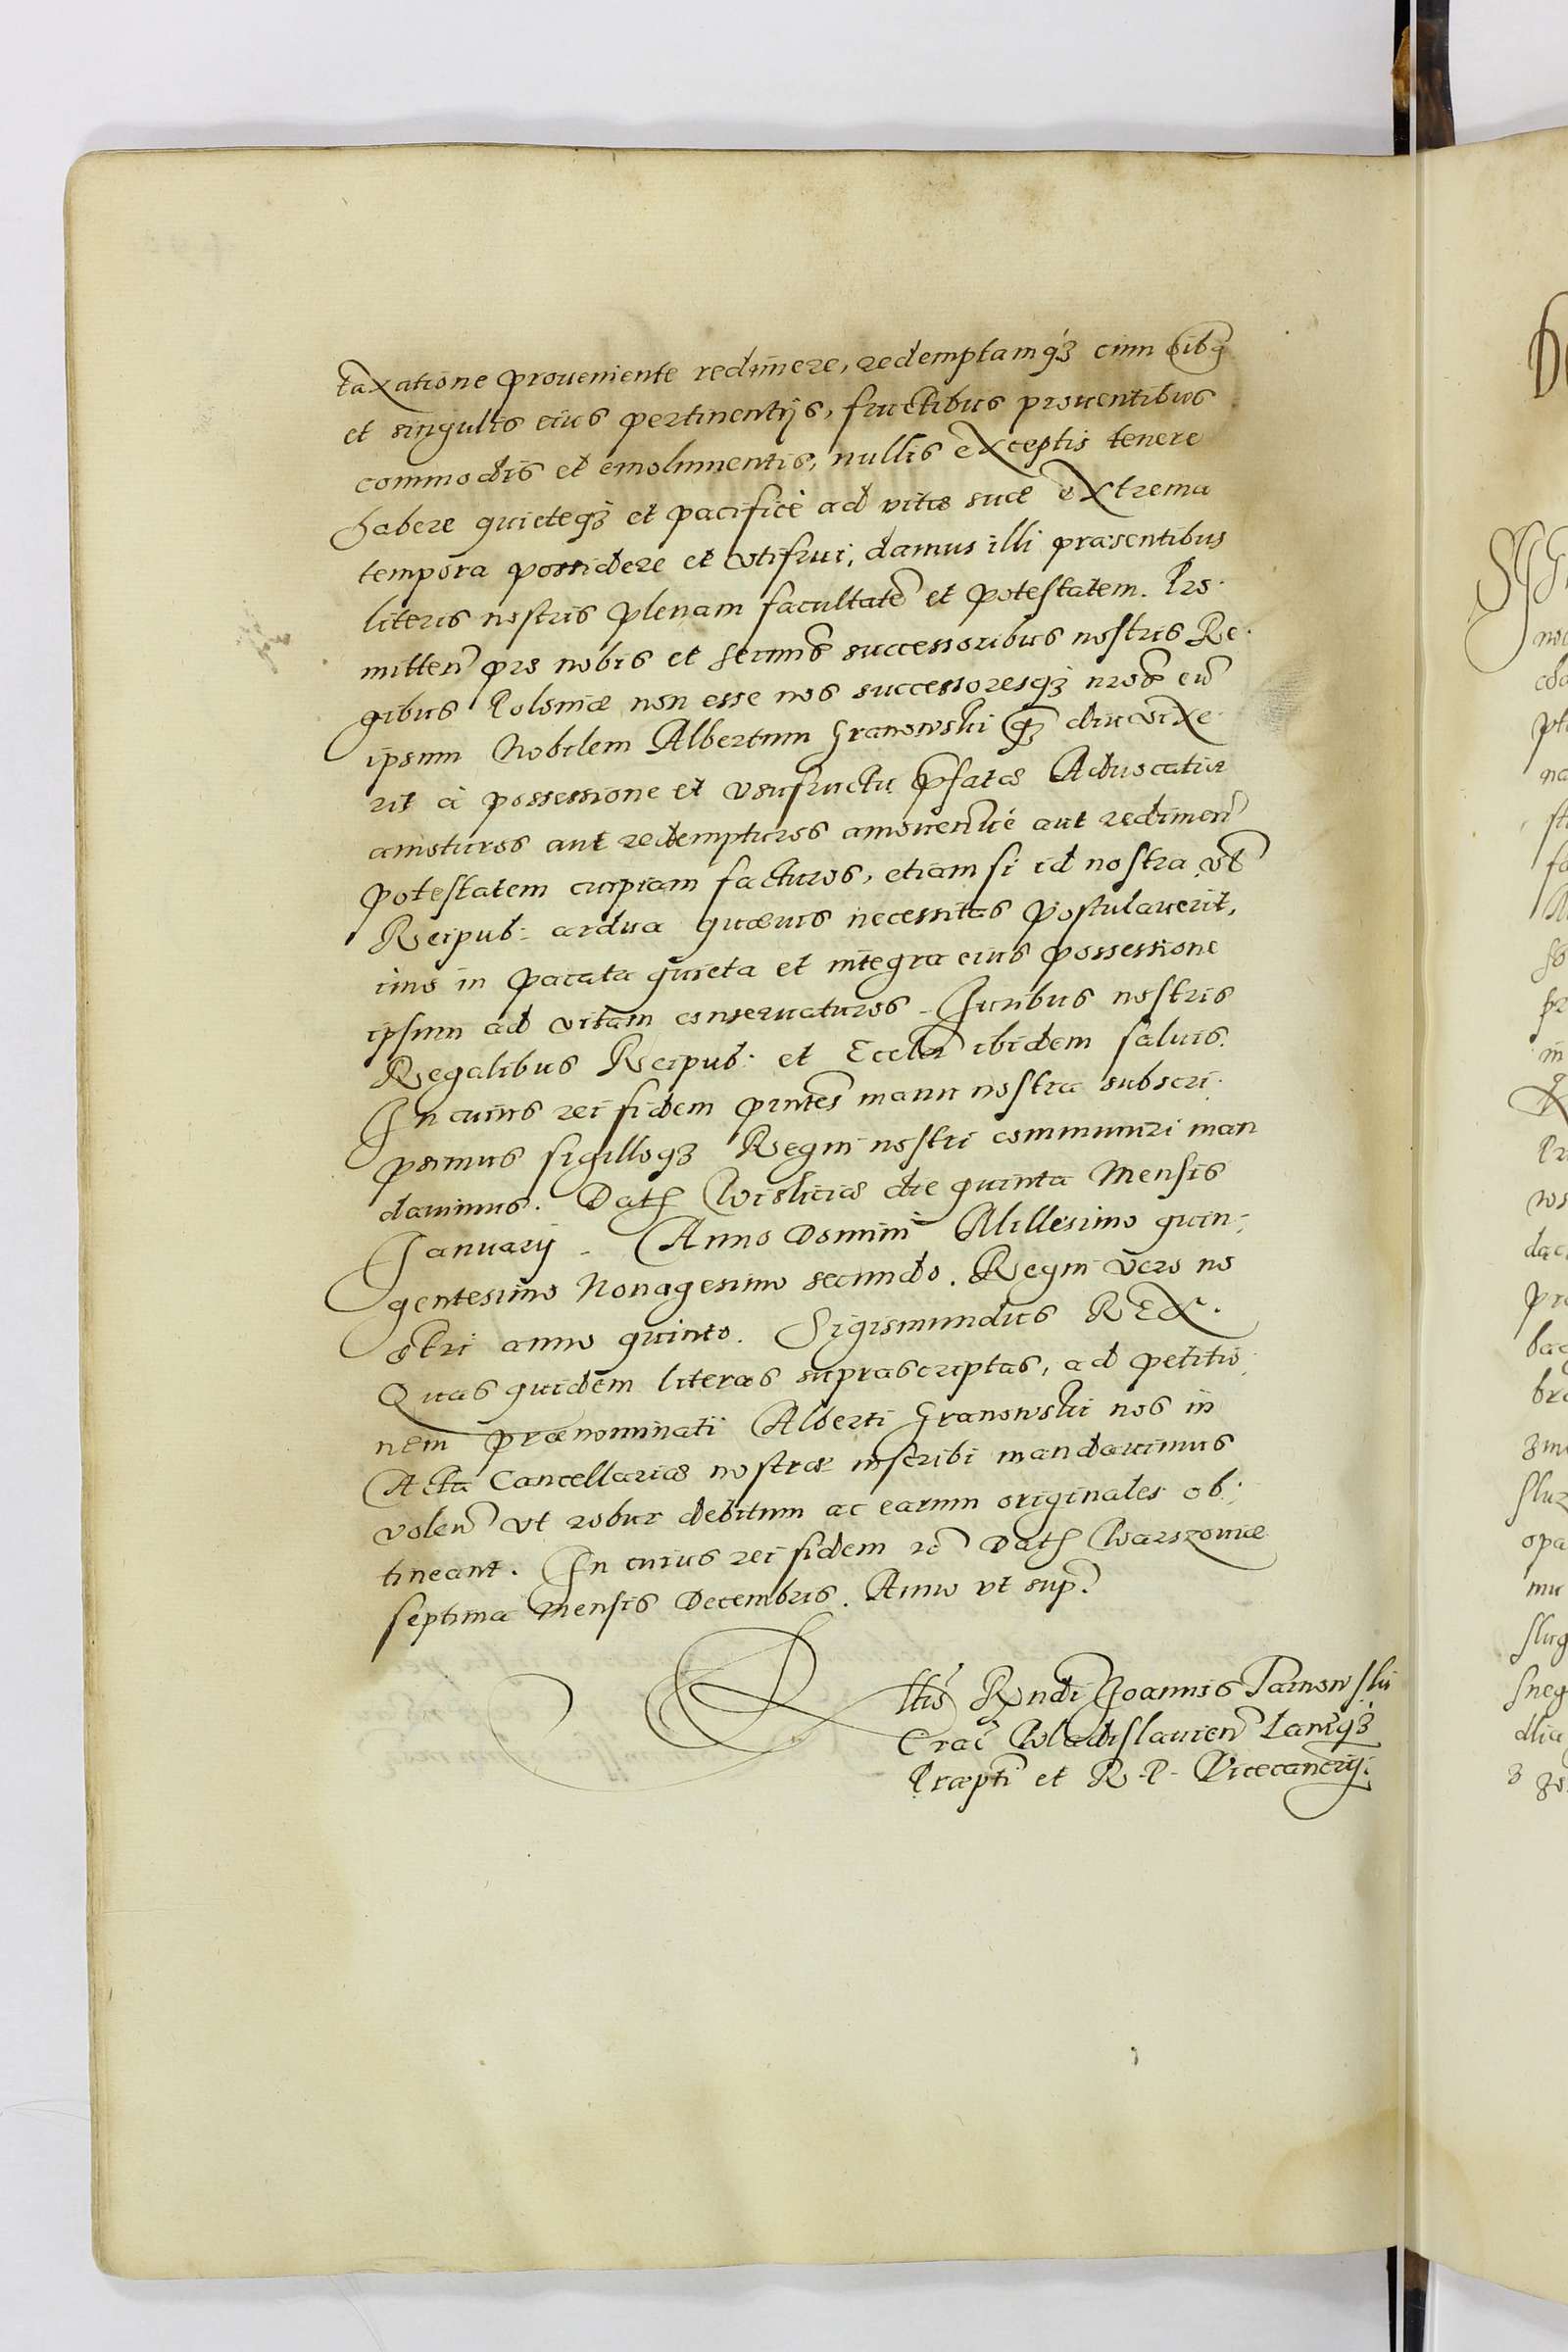 taxatione proueniente redimere, redemptamq́ꝫ cum oĩbꝫ
et singulis eius pertinentijs, fructibus prouentibus
commodis et emolumentis, nullis exceptis tenere
habere quieteqꝫ et pacificè ad vitæ suæ extrema
tempora possidere et vtifrui, damus illi præsentibus
literis nostris plenam facultatẽ et potestatem. Pro-
mitten̄ pro nobis et Serm̃is successoribus nostris Re-
gibus Poloniæ non esse nos successoresqꝫ nr̃os eũ
ipsum Nobilem Albertum Granowski qꝫ diu vixe-
rit à possessione et vsufructu p̃fatæ Aduocatiæ
amoturos aut redempturos amouen̄ue aut redimen̄
potestatem cuipiam facturos, etiam si id nostra vł
Reipub: ardua quæuis necessitas postulauerit,
imo in pacata quieta et integra eius possessione
ipsum ad vitam conseruaturos. Iuribus nostris
Regalibus Reipub: et Eccl̃æ ibidem saluis.
In cuius rei fidem pn̄tes manu nostra subscri-
psimus sigilloqꝫ Regni nostri communiri man
dauimus. Datꝭ Wisliciæ die quinta Mensis
Januarij. Anno Domini Millesimo quin-
gentesimo Nonagesimo secundo. Regni vero no
stri anno quinto. Sigismundus REX.
Quas quidem literas suprascriptas, ad petitio-
nem prænominati Alberti Granowski nos in
Acta Cancellariæ nostræ inscribi mandauimus
volen̄ vt robur debitum ac earum originales ob-
tineant. In cuius rei fidem rc̃ Datꝭ Warszouiæ
septima Mensis Decembris. Anno vt sup.
R̃ttis Rndi Joannis Tarnowski
Crac̃ Wladislauien̄ Lanc̃qꝫ
Præpti et R. P. Vicecancrij.